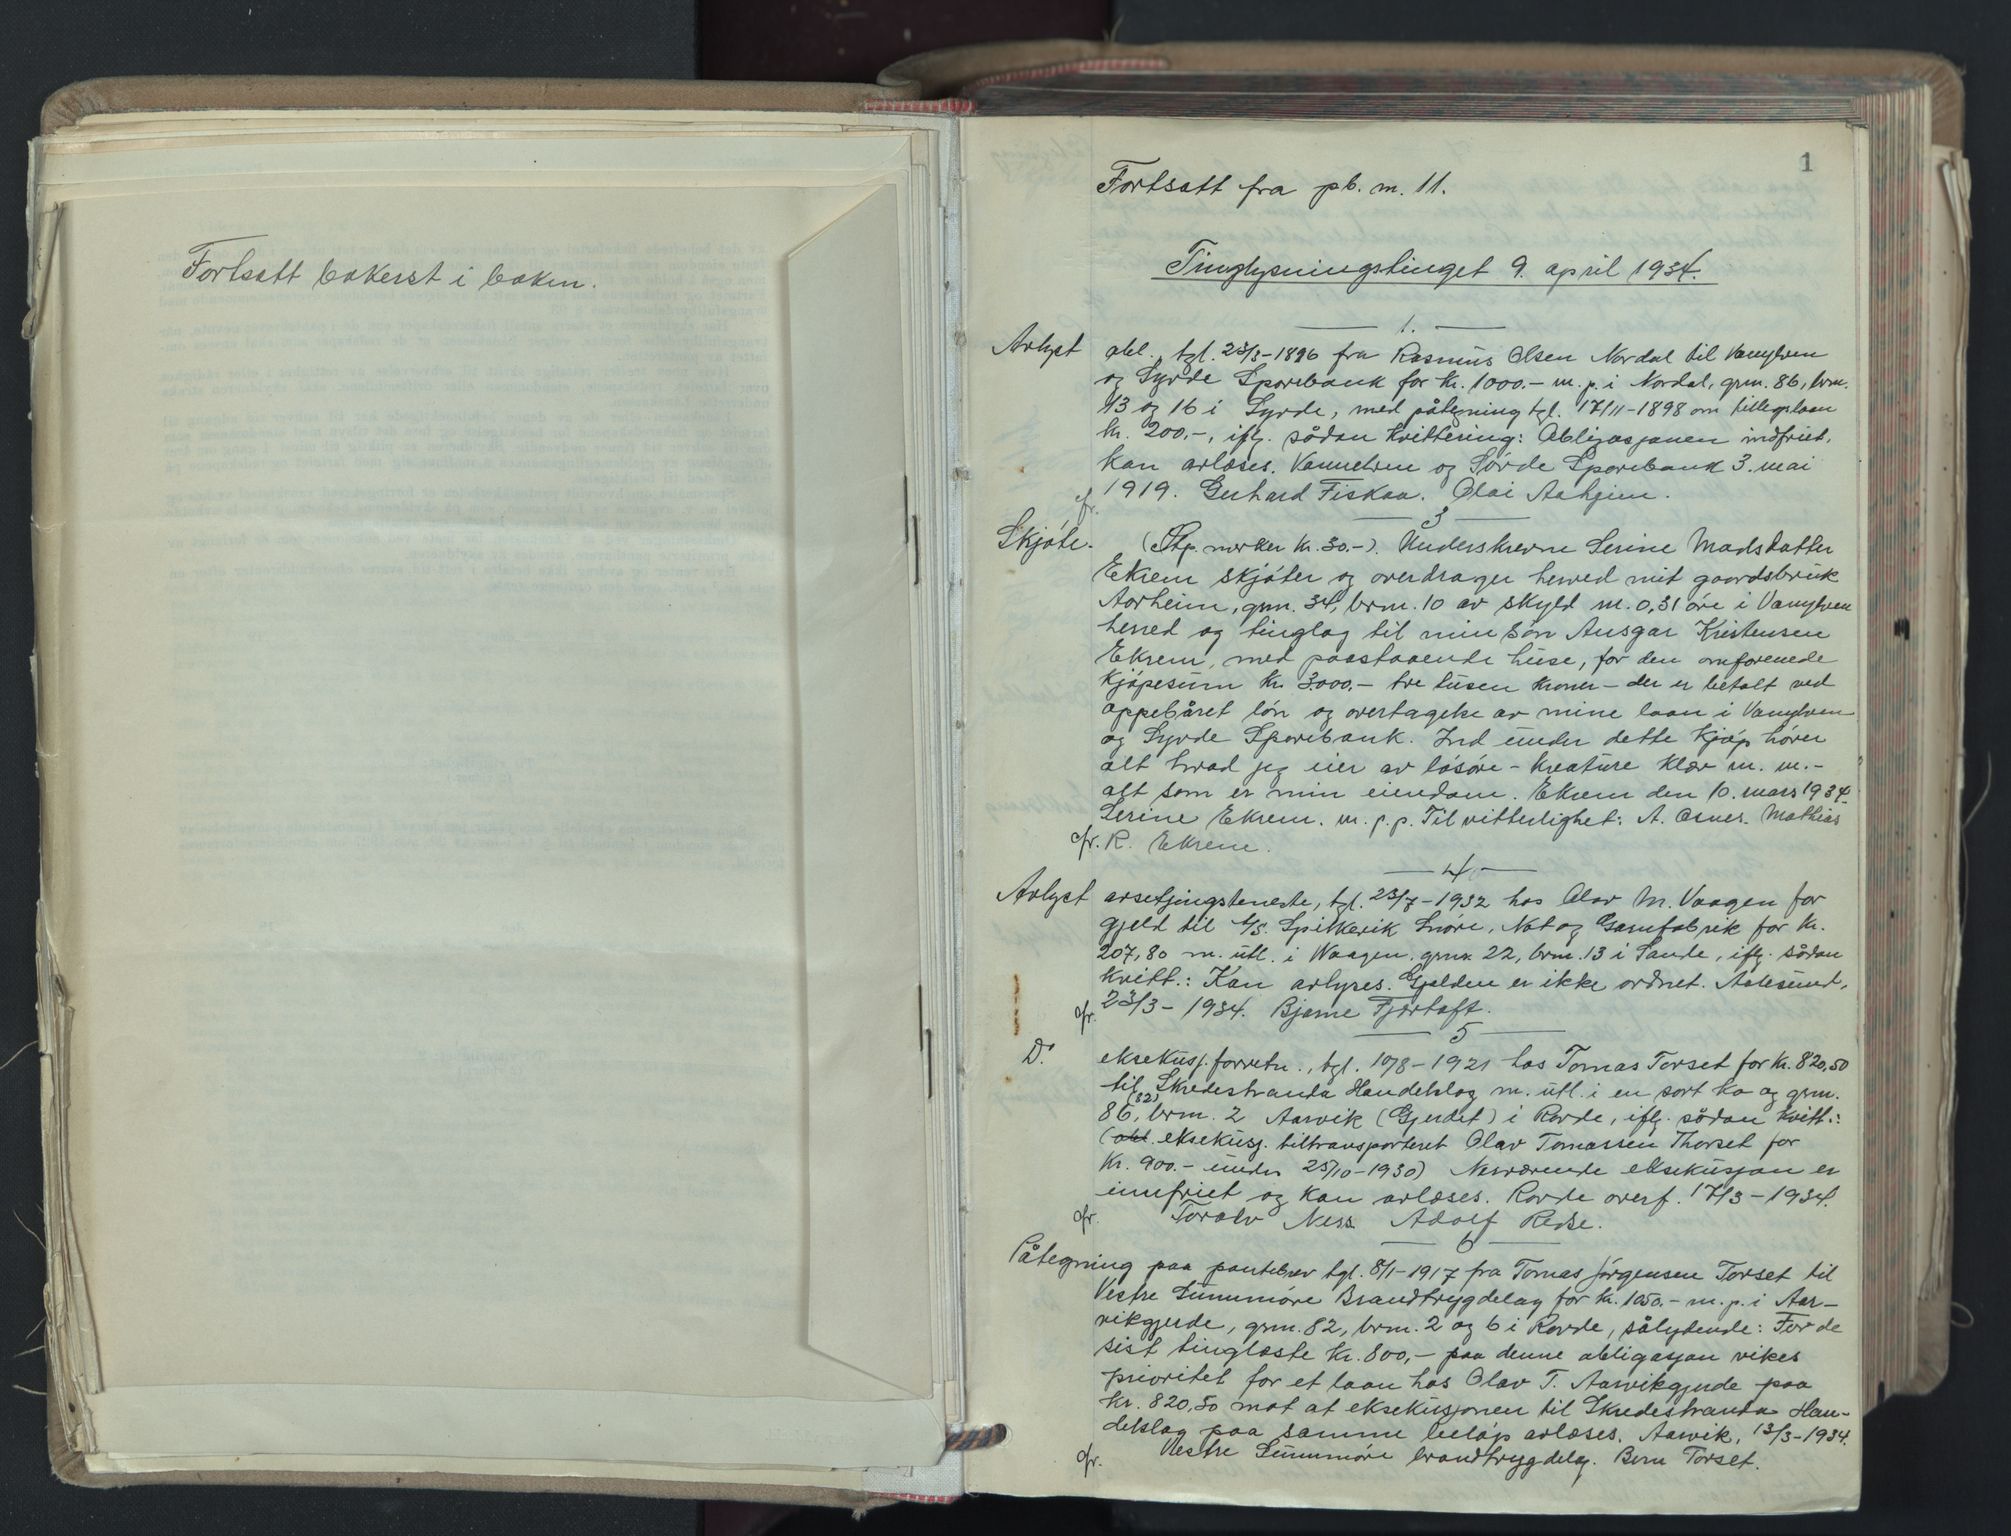 Fortsatt bakerst i boken.
1
Fortsatt fra pb. m. 11.
Tinglysningstinget 9. april 1934.
1.
Avlyst obl., tgl. 23/3-1896 fra Rasmus Olsen Nordal til Vanylven
og Syvde Sparebank for kr. 1000.- m. p. i Nordal, grm. 86, brm.
13 og 16 i Syvde, med påtegning tgl. 17/11-1898 om tillegslaan
kr. 200.-, iflg. sådan kvittering: Obligasjonen indfriet,
kan avlæses. Vannelven og Sövde Sparebank 3. mai
1919. Gerhard Fiskaa. Olai Aahjem.
cfr.
3
Skjöte. (Stp. merker kr. 30.-). Underskrevne Serine Madsdatter
Ekrem skjöter og overdrager herved mit gaardsbruk
Aarheim, grm. 34, brm. 10 av skyld m. 0,31 öre i Vanylven
herred og tinglag til min sön Ansgar Kristensen
Ekrem, med paastaaende huse, for den omforenede
kjöpesum kr. 3000.- tre tusen kroner - der er betalt ved
oppebåret lön og overtagelse av mine laan i Vanylven
og Syvde Sparebank. Ind under dette kjöp hörer
alt hvad jeg eier av lösöre - kreature klær m. m.-
alt som er min eiendom. Ekrem den 10. mars 1934.
Serine Ekrem. m. p. p. Til vitterlighet: A. Osnes. Mathias
cfr. R. Ekrem.
4
Avlyst arsetjingsteneste, tgl. 23/7-1932 hos Olav M. Vaagen for
gjeld til A/S. Spilkevik Snöre, Not og Garnfabrik for kr.
207,80 m. utl. i Waagen, grm. 22, brm. 13 i Sande, iflg. sådan
kvitt.: Kan avlyses. Gjelden er ikke ordnet. Aalesund,
cfr. 23/3-1934. Bjarne Fjørtoft.
5
Do. eksekusj. forretn., tgl. 10/8-1921 hos Tomas Torset for kr. 820,50
til Skredestranda Handelslag m. utl. i en sort ko og grm.
(82)
86, brm. 2 Aarvik (Gjerdet) i Rovde, iflg. sådan kvitt.:
(obl. eksekusj. tiltransporteret Olav Tomassen Thorset for
kr. 900.- under 25/10-1930) Nærværende eksekusjon er
innfriet og kan avlæses. Rovde overf. 17/3-1934.
cfr. Toralv Ness Adolf Redse.
6
Påtegning paa pantebrev tgl. 8/1-1917 fra Tomas Jörgensen Torset til
Vestre Sunnmöre Brandtrygdelag for kr. 1050.- m. p. i Aar-
vikgjerde, grm. 82, brm. 2 og 6 i Rovde, sålydende: For de
sist tinglæste kr. 800,- paa denne obligasjon vikes
prioritet for et laan hos Olav T. Aarvikgjerde paa
kr. 820,50 mot at eksekusjonen til Skredestranda Han-
delslag paa samme belöp avlæses. Aarvik, 13/3-1934.
cfr. Vestre Sunnmöre brandtrygdelag. Bern Torset.